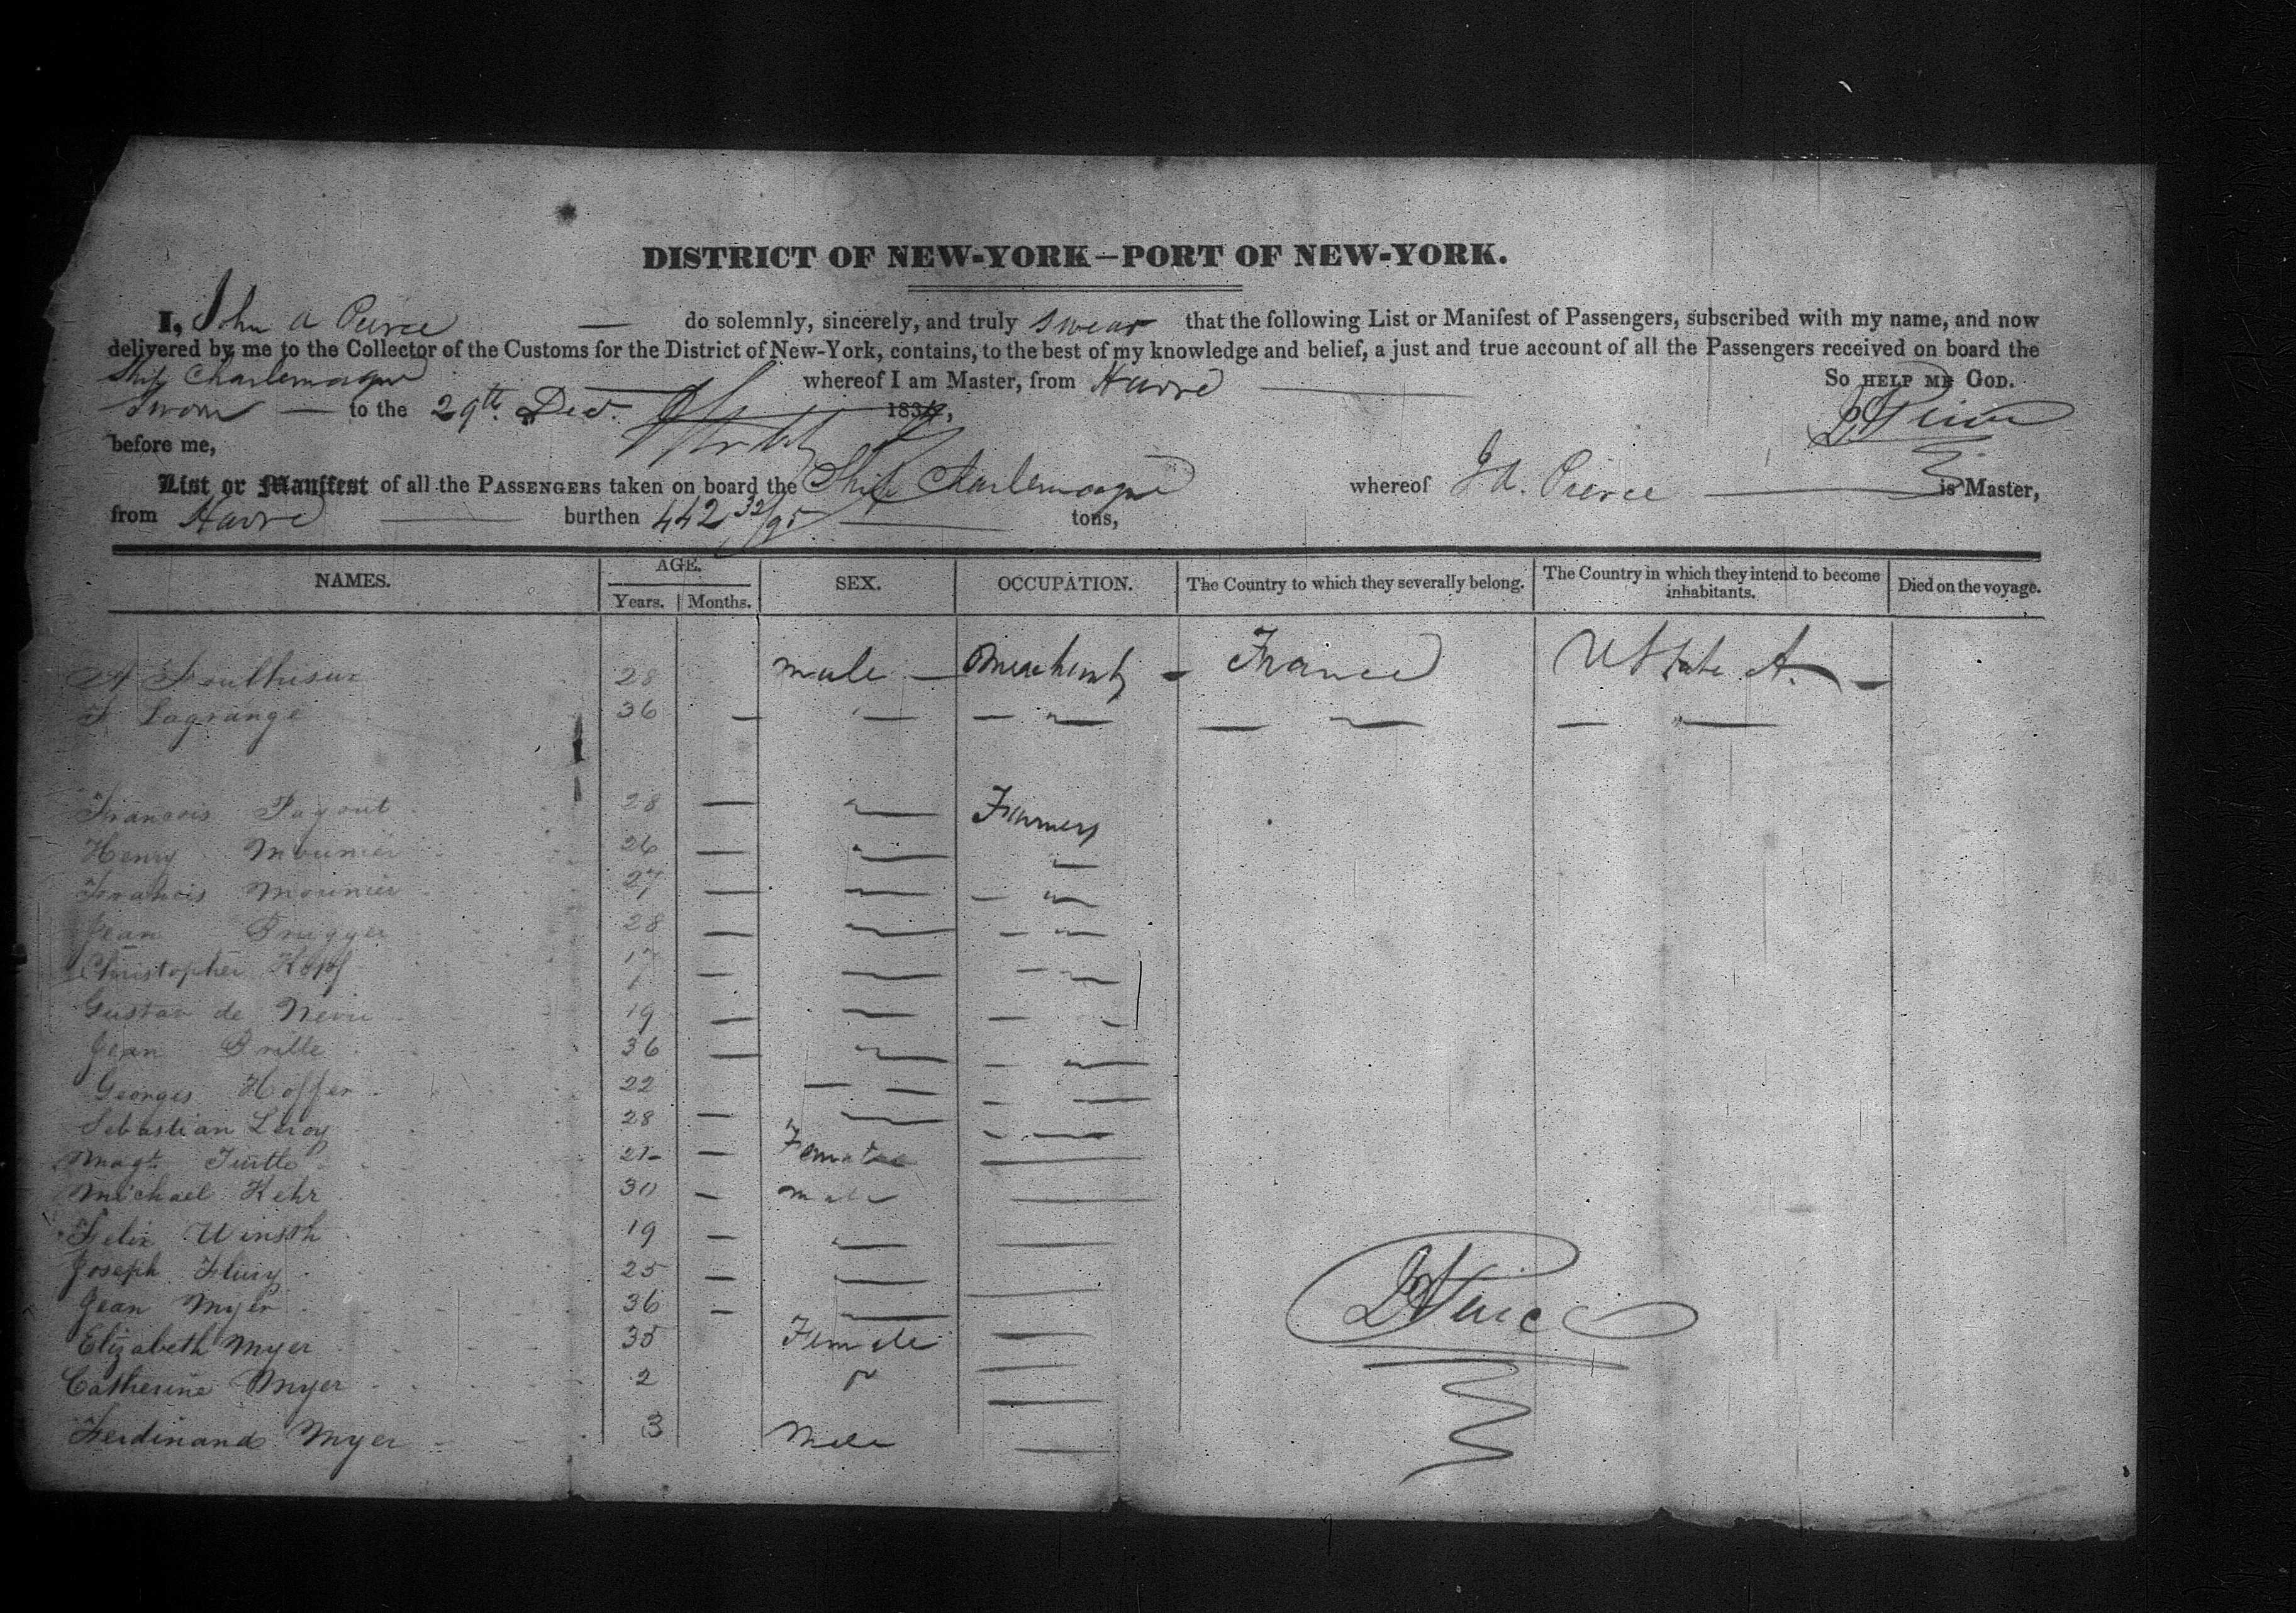 DISTRICT OF NEW-YORK—PORT OF NEW-YORK.
I, John A Pierce — do solemnly, sincerely, and truly swear that the following List or Manifest of Passengers, subscribed with my name, and now
delivered by me to the Collector of the Customs for the District of New-York, contains, to the best of my knowledge and belief, a just and true account of all the Passengers received on board the
Ship Charlemagne whereof I am Master, from Havre — So HELP ME GOD.
Sworn — to the 29th Dec. 183
before me,
List or Manifest of all the PASSENGERS taken on board the Ship Charlemagne whereof J A. Pierce — is Master,
from Havre — burthen 442 32/95 — tons,
NAMES. AGE. SEX. OCCUPATION. The Country to which they severally belong. The Country in which they intend to become inhabitants. Died on the voyage.
Years. Months.
28 male — Merchant — France U State A. —
F Lagrange 36 — " — — " — — " — — " —
Francois 28 — " — Farmers
Henry Mounier 26 — " — "
Francis Mounier 27 — " — — "
Jean Brugger 28 — " — — "
Christopher Hopf 17 — " — — "
Gustav de 19 — " — —
Jean Brille 36 — " — — "
Georges Hoffer 22 — — — —
Sebastian Leroy 28 — " — — "
Magt. 21 — Female —
Michael Kehr 30 — male —
Felix 19 — " — —
Joseph 25 — " — —
Jean Myer 36 — " — —
Elizabeth Myer 35 Female —
Catherine Myer 2 " —
Ferdinand Myer 3 Male —
J A Pierce